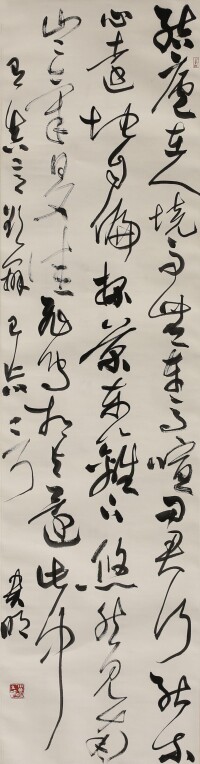 結廬在人境而無車馬喧問君何能尔
心遠地自偏採菊東籬下悠然見南
山山氣日夕佳飛鳥相與還此中
有真意欲辨已忘言